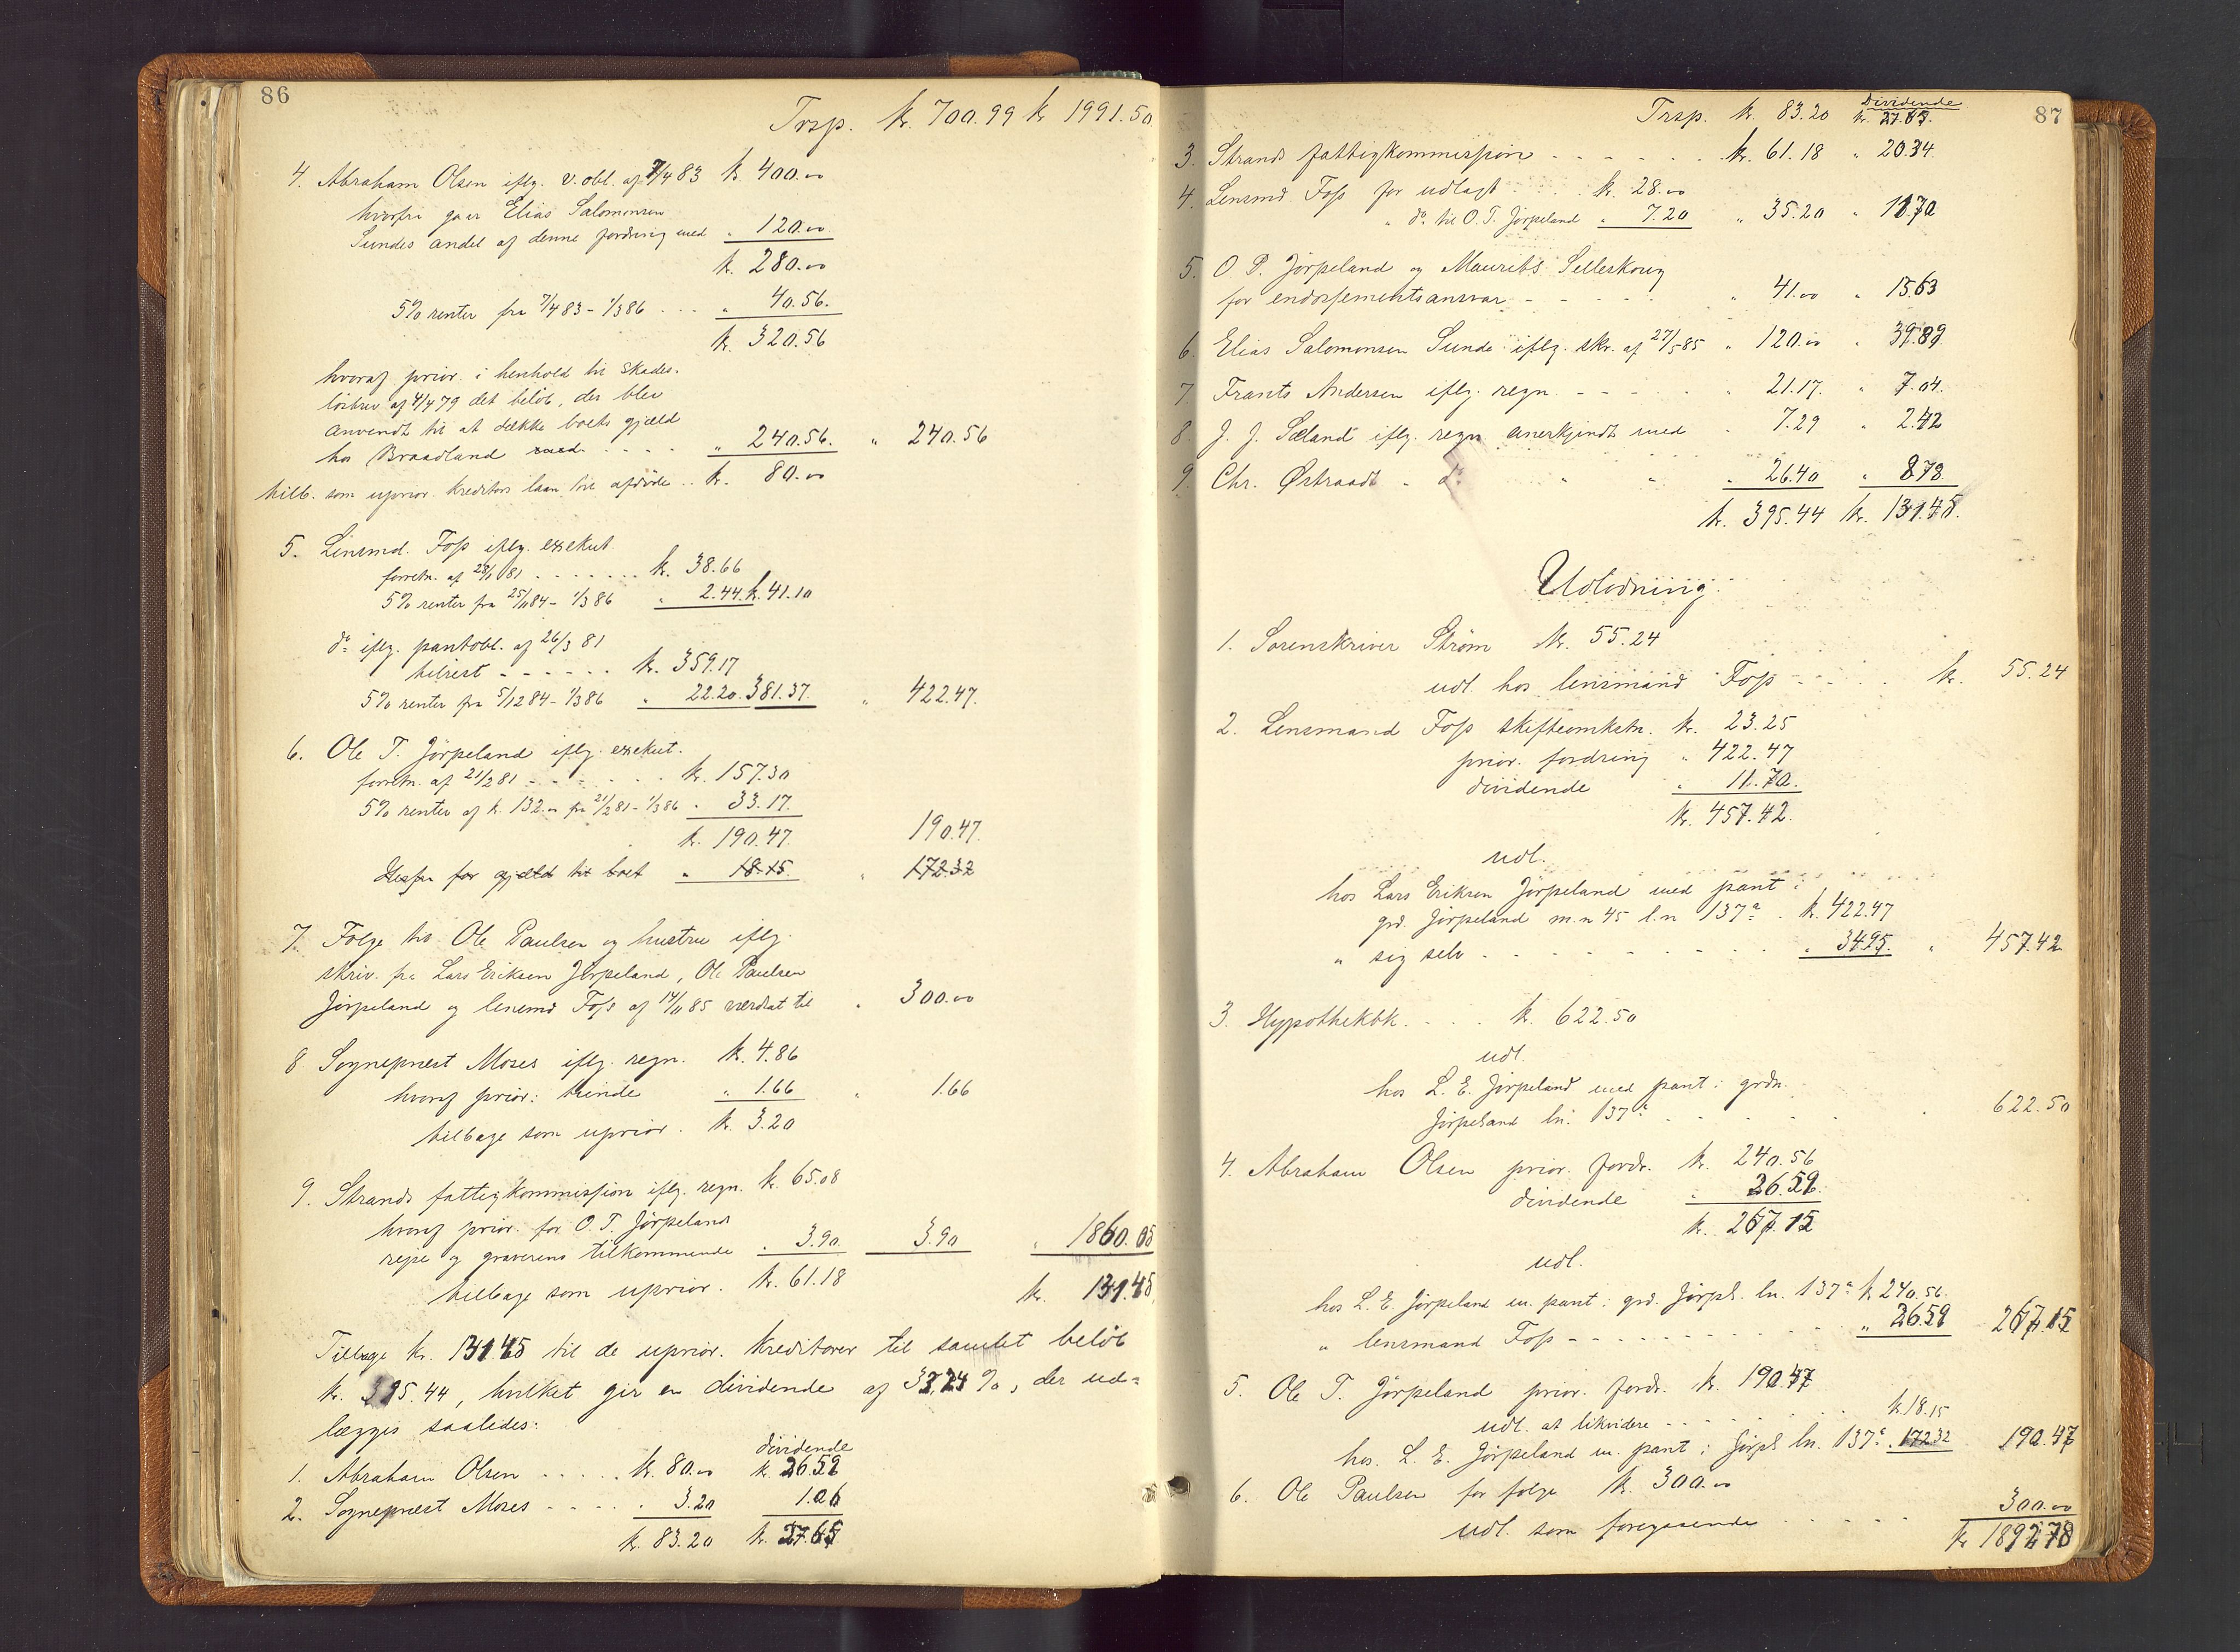 86
Trsp. kr. 700.99 kr 1991.50
4. Abraham Olsen iflg. v. obl. af 7/4 83 kr 400.00
hvorfra gaar Elias Salomonsen
Sundes andel af denne fordring med " 120.00
kr. 280.00
5% renter fra 7/4 83 - 1/3 86 ... " 40.56.
kr. 320.56
hvoraf prior. i henhold til skades-
løsbrev af 4/4 79 det beløb, der blev
anvendt til at dække boets gjæld
hos Braadland .... " 240.56. " 240.56
tilb. som uprior. kreditor laan til afdøde .. kr. 80.00
5. Lensmd. Foss iflg. exekut.
forretn. af 28/1 81 ....... kr. 38.66
5% renter fra 25/11 84 - 1/3 86 " 2.44. kr. 41.10
do iflg. pantobl. af 26/3 81
tilrest ------ kr. 359.17
5% renter fra 5/12 84 - 1/3 86 " 22.20. 381.37. " 422.47.
6. Ole T. Jørpeland iflg. exekut.
forretn. af 21/2 81 ------- kr. 157.30
5% renter af kr. 132.00 fra 21/2 81 - 1/3 86 " 33.17.
kr. 190.47. 190.47.
Herfra for gjæld til boet " 18.15. " 172.32
7. Folge til Ole Paulsen og hustru iflg.
skriv. fra Lars Eriksen Jørpeland, Ole Paulsen
Jørpeland og lensmd Foss af 14/11 85 værdsat til " 300.00
8 Sogneprest Moses iflg. regn. kr. 4.86
hvoraf prior: tiende " 1.66 " 1.66
tilbage som uprior. kr. 3.20
9. Strands fattigkommission iflg. regn. kr. 65.08
hvoraf prior. for O. T. Jørpelands
rejse og graverens tilkommende " 3.90 3.90 " 1860.05
tilbage som uprior. kr. 61.18 kr. 131.45
Tilbage kr. 131.45 til de uprior. kreditorer til samlet beløb
kr. 395.44, hvilket gir en dividende af 33,24 %, der ud-
lægges saaledes:
dividende
1. Abraham Olsen ..... kr. 80.00 kr. 26.59
2. Sogneprest Moses ----- " 3.20 1.06
kr. 83.20 kr. 27.65
87
Dividende
Trsp. kr. 83.20 kr. 27.65.
3. Strands fattigkommission ------- kr. 61.18 " 20.34
4. Lensmd Foss for udlagt .... kr. 28.00
" do til O. T. Jørpeland " 7.20 " 35.20 " 11.70
5. O. P. Jørpeland og Maurits Selleskoug
for endossementsansvar ------ " 41.00 " 13.63
6. Elias Salomonsen Sunde iflg. skr. af 27/5 85 " 120.00 " 39.89
7. Frants Andersen iflg. regn. ----- " 21.17. " 7.04.
8. J. J. Sæland iflg. regn anerkjendt med " 7.29 " 2.42
9. Chr. Østraadt " do " " " 26.40 " 8.78
kr. 395.44 kr. 131.45.
Udlodning.
1. Sorenskriver Strøm kr. 55.24
udl. hos lensmand Foss ---- kr. 55.24
2. Lensmand Foss skifteomkstn. kr. 23.25
prior. fordring " 422.47
dividende " 11.70.
kr. 457.42.
udl.
hos Lars Eriksen Jørpeland med pant i
grd. Jørpeland m.n 45 l.n 137a . kr. 422.47
" sig selv ---------- " 34.95. " 457.42
3. Hypothekbk. ... kr. 622.50
udl.
hos L. E. Jørpeland med pant i grdn.
Jørpeland ln. 137a ------ 622.50
4. Abraham Olsen prior. fordr. kr. 240.56
dividende " 26.59.
kr. 267.15
udl.
hos L. E. Jørpeland m. pant i grd. Jørpl. ln. 137a kr 240.56.
" lensmand Foss ---------- " 26.59 267.15
5. Ole T. Jørpeland prior. fordr. kr. 190.47
udl. at likvidere ------ kr. 18.15
hos. L. E. Jørpeland m. pant i Jørpl. ln. 137a . 172.32 190.47
6. Ole Paulsen for folge kr. 300.00
udl. som foregaaende ------ 300.00
kr 1892.78